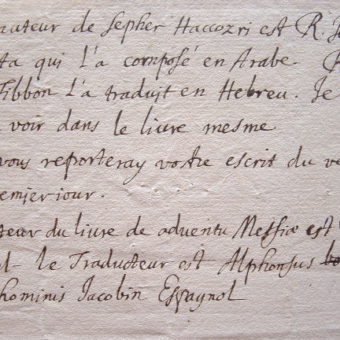 auteur de Sepher Haccozri est R. J
ta qui l'a composé en Arabe.
Tibbon l'a traduit en Hebreu. Je
voir dans le livre mesme
vous reporteray vostre escrit du
premier jour.
teur du livre de adventu Messiæ est
le Traducteur est Alphonsus
hominis Jacobin Espagnol